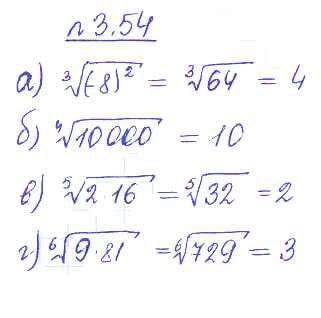 п 3.54
а) ∛(-8)² = ∛64 = 4
б) ∜10000 = 10
в) ⁵√2·16 = ⁵√32 = 2
г) ⁶√9·81 = ⁶√729 = 3